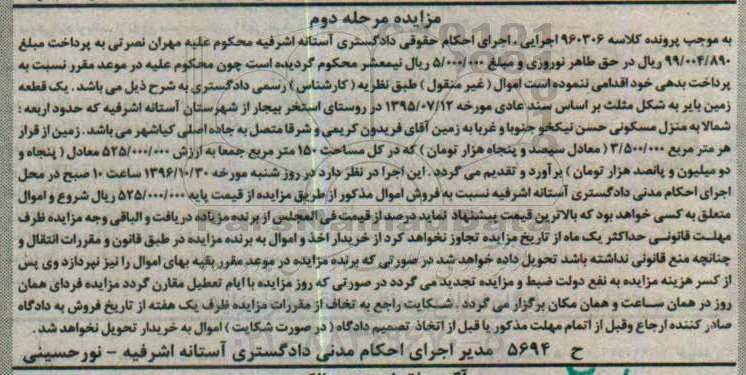 مزایده مرحله دوم
به موجب پرونده کلاسه ۹۶۰۳۰۶ اجرایی ، اجرای احکام حقوقی دادگستری آستانه اشرفیه محکوم علیه مهران نصرتی به پرداخت مبلغ
۹۹/۰۰۴/۸۹۰ ریال در حق طاهر نوروزی و مبلغ ۵/۰۰۰/۰۰۰ ریال نیمعشر محکوم گردیده است چون محکوم علیه در موعد مقرر نسبت به
پرداخت بدهی خود اقدامی ننموده است اموال ( غیر منقول ) طبق نظریه ( کارشناس ) رسمی دادگستری به شرح ذیل می باشد . یک قطعه
زمین بایر به شکل مثلث بر اساس سند عادی مورخه ۱۳۹۵/۰۷/۱۲ در روستای استخر بیجار از شهرستان آستانه اشرفیه که حدود اربعه :
شمالا به منزل مسکونی حسن نیکخو جنوبا و غربا به زمین آقای فریدون کریمی و شرقا متصل به جاده اصلی کیاشهر می باشد . زمین از قرار
هر متر مربع ۳/۵۰۰/۰۰۰ ( معادل سیصد و پنجاه هزار تومان ) که در کل مساحت ۱۵۰ متر مربع جمعا به ارزش ۵۲۵/۰۰۰/۰۰۰ معادل ( پنجاه و
دو میلیون و پانصد هزار تومان ) برآورد و تقدیم می گردد . این اجرا در نظر دارد در روز شنبه مورخه ۱۳۹۶/۱۰/۳۰ ساعت ۱۰ صبح در محل
اجرای احکام مدنی دادگستری آستانه اشرفیه نسبت به فروش اموال مذکور از طریق مزایده از قیمت پایه ۵۲۵/۰۰۰/۰۰۰ ریال شروع و اموال
متعلق به کسی خواهد بود که بالاترین قیمت پیشنهاد نماید درصد از قیمت فی المجلس از برنده مزیاده دریافت و الباقی وجه مزایده ظرف
مهلت قانونی حداکثر یک ماه از تاریخ مزایده تجاوز نخواهد کرد از خریدار اخذ و اموال به برنده مزایده در طبق قانون و مقررات انتقال و
چنانچه منع قانونی نداشته باشد تحویل داده خواهد شد در صورتی که برنده مزایده در موعد مقرر بقیه بهای اموال را نیز نپردازد وی پس
از کسر هزینه مزایده به نفع دولت ضبط و مزایده تجدید می گردد در صورتی که روز مزایده با ایام تعطیل مقارن گردد مزایده فردای همان
روز در همان ساعت و همان مکان برگزار می گردد . شکایت راجع به تخاف از مقررات مزایده ظرف یک هفته از تاریخ فروش به دادگاه
صادر کننده ارجاع وقبل از اتمام مهلت مذکور یا قبل از اتخاذ تصمیم دادگاه ( در صورت شکایت ) اموال به خریدار تحویل نخواهد شد .
ح ۵۶۹۴ مدیر اجرای احکام مدنی دادگستری آستانه اشرفیه - نورحسینی